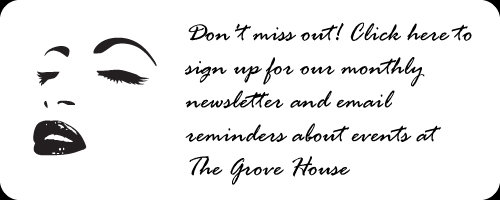 Don't miss out! Click here to
sign up for our monthly
newsletter and email
reminders about events at
The Grove House